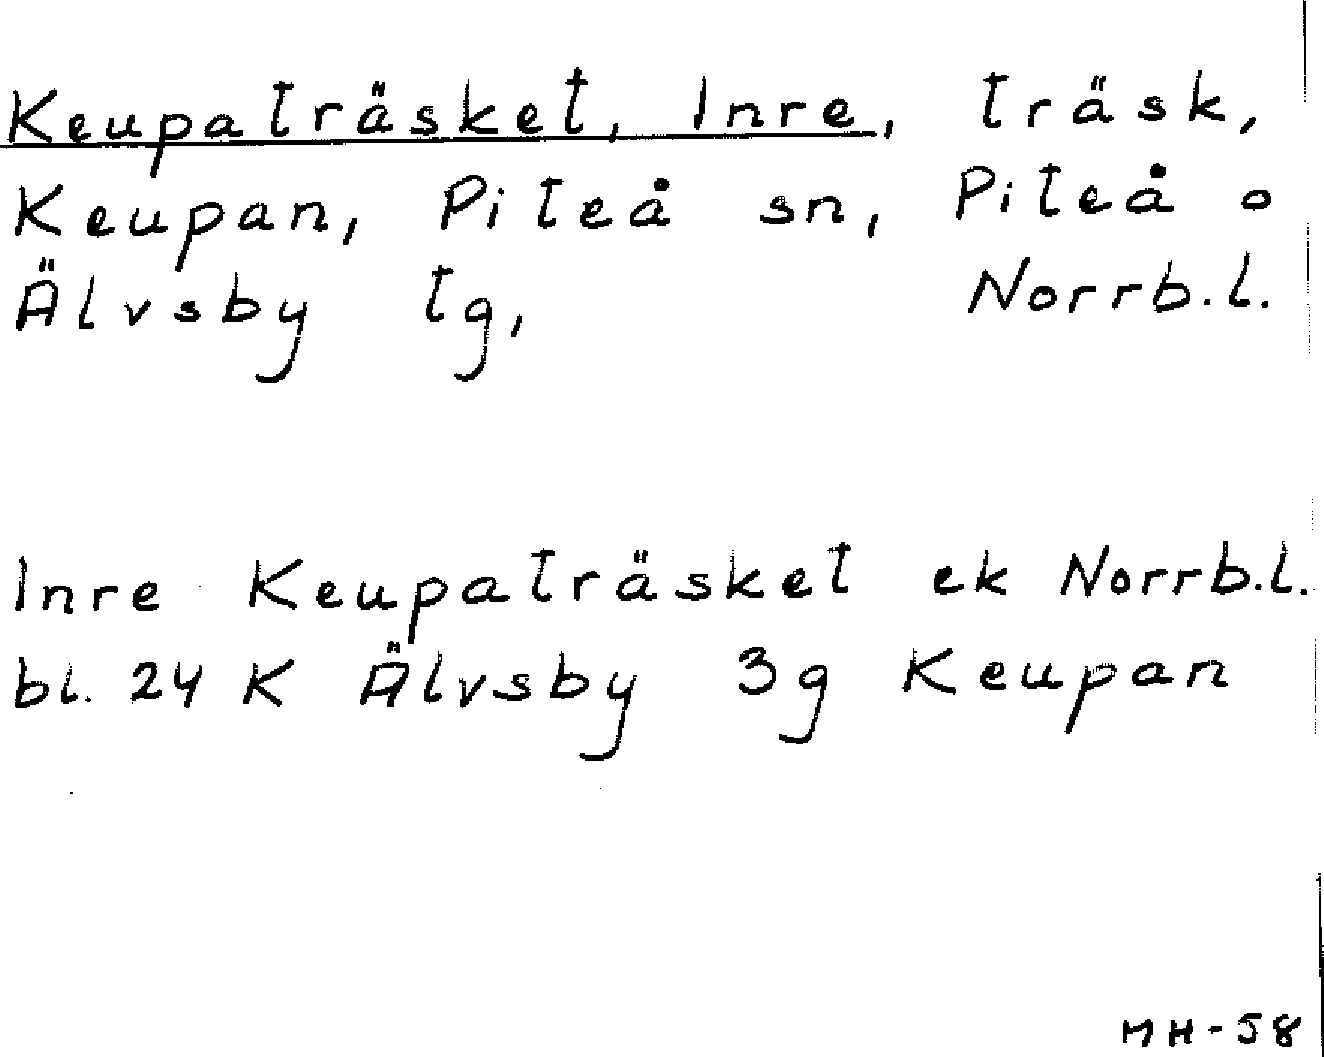 Keupaträsket, Inre, träsk,
Keupan, Piteå sn, Piteå o
Älvsby tg, Norrb.l.
Inre Keupaträsket ek Norrb.l.
bl. 24 K Älvsby 3g Keupan
MH-58